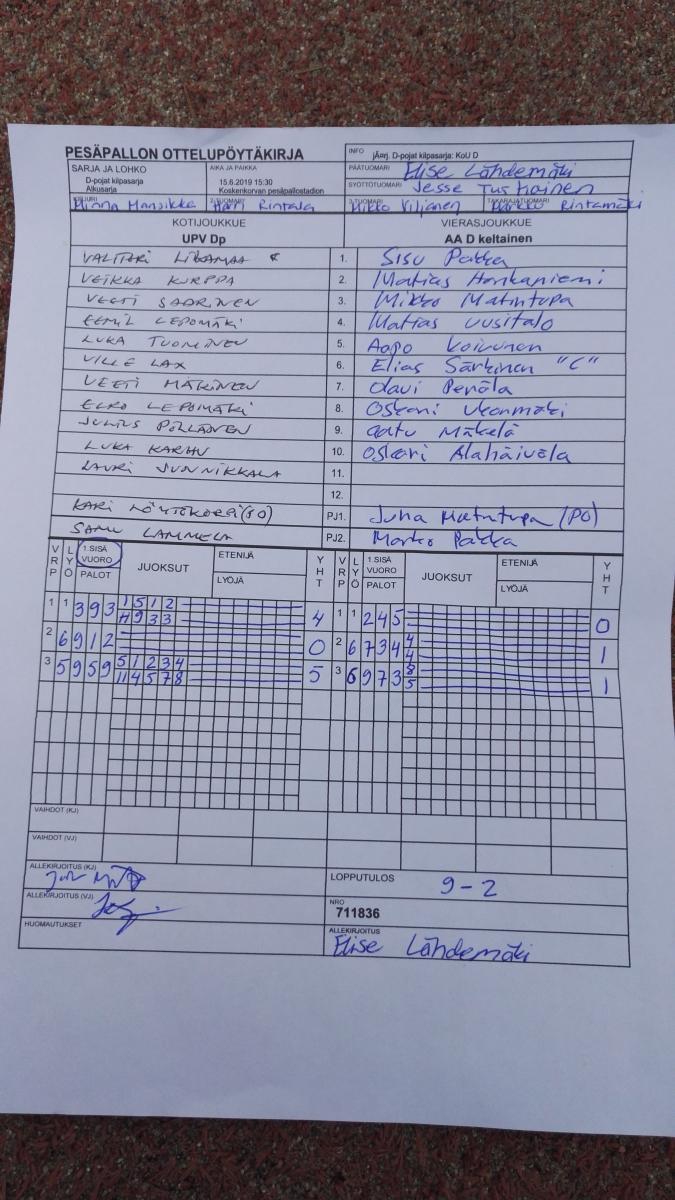 PESÄPALLON OTTELUPÖYTÄKIRJA
INFO jÄorj. D-pojat kilpasarja: KoU D
SARJA JA LOHKO
D-pojat kilpasarja
Alkusarja
AIKA JA PAIKKA
15.6.2019 15:30
Koskenkorvan pesäpallostadion
PÄÄTUOMARI Elise Lähdemäki
SYÖTTÖTUOMARI Jesse Tustiainen
KIRJURI Minna Mansikka
2-TUOMARI Harri Rintala
3-TUOMARI Mikko Viljanen
TAKARAJATUOMARI Markko Rintamäki
KOTIJOUKKUE
UPV Dp
VIERASJOUKKUE
AA D keltainen
VALTTERI LIKAMAA C 1. Sisu Pakka
VEIKKA KURPPA 2. Matias Honkaniemi
VEETI SAARINEN 3. Mikko Matintupa
EEMIL LEPOMÄKI 4. Matias Uusitalo
LUKA TUOMINEN 5. Aapo Koivunen
VILLE LAX 6. Elias Särkinen "C"
VEETI MÄKINEN 7. Olavi Penäla
EERO LEPOMÄKI 8. Oskari Ukonmäki
JULIUS PÖLLÄNEN 9. Aatu Mäkelä
LUKA KARHU 10. Oskari Alahäivälä
LAURI JUNNIKKALA 11.
12.
KARI (PO) PJ1. Juha Matintupa (PO)
SAMU LAMMELA PJ2. Marko Pakka
VRP LYÖ 1.SISÄ VUORO PALOT JUOKSUT ETENIJÄ LYÖJÄ YHT VRP LYÖ 1.SISÄ VUORO PALOT JUOKSUT ETENIJÄ LYÖJÄ YHT
1 1 3 9 3 1 5 1 2 4 1 1 2 4 5 0
11 9 3 3
2 6 9 1 2 0 2 6 7 3 4 4 1
4
3 5 9 5 9 5 1 2 3 4 5 3 6 9 7 3 8 1
11 4 5 7 8 5
VAIHDOT (KJ)
VAIHDOT (VJ)
ALLEKIRJOITUS (KJ)
LOPPUTULOS 9-2
ALLEKIRJOITUS (VJ)
NRO
711836
HUOMAUTUKSET
ALLEKIRJOITUS
Elise Lähdemäki